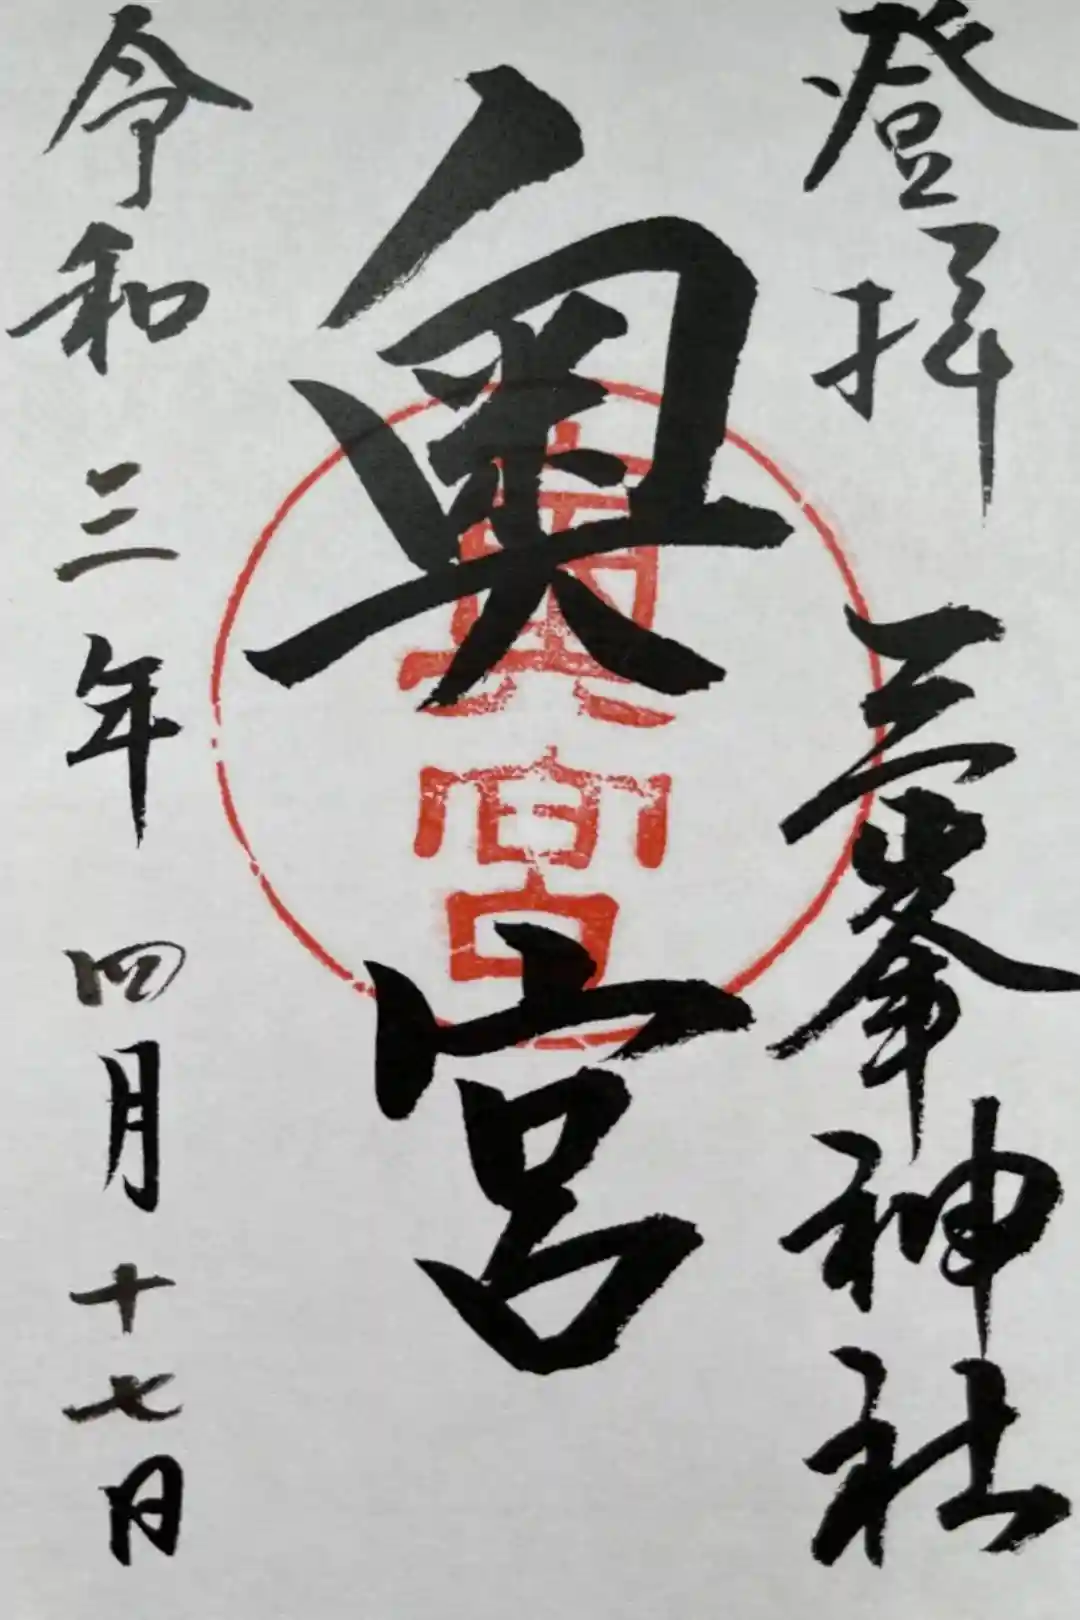 登拝 三峯神社
奥宮
奥宮
令和三年 四月十七日